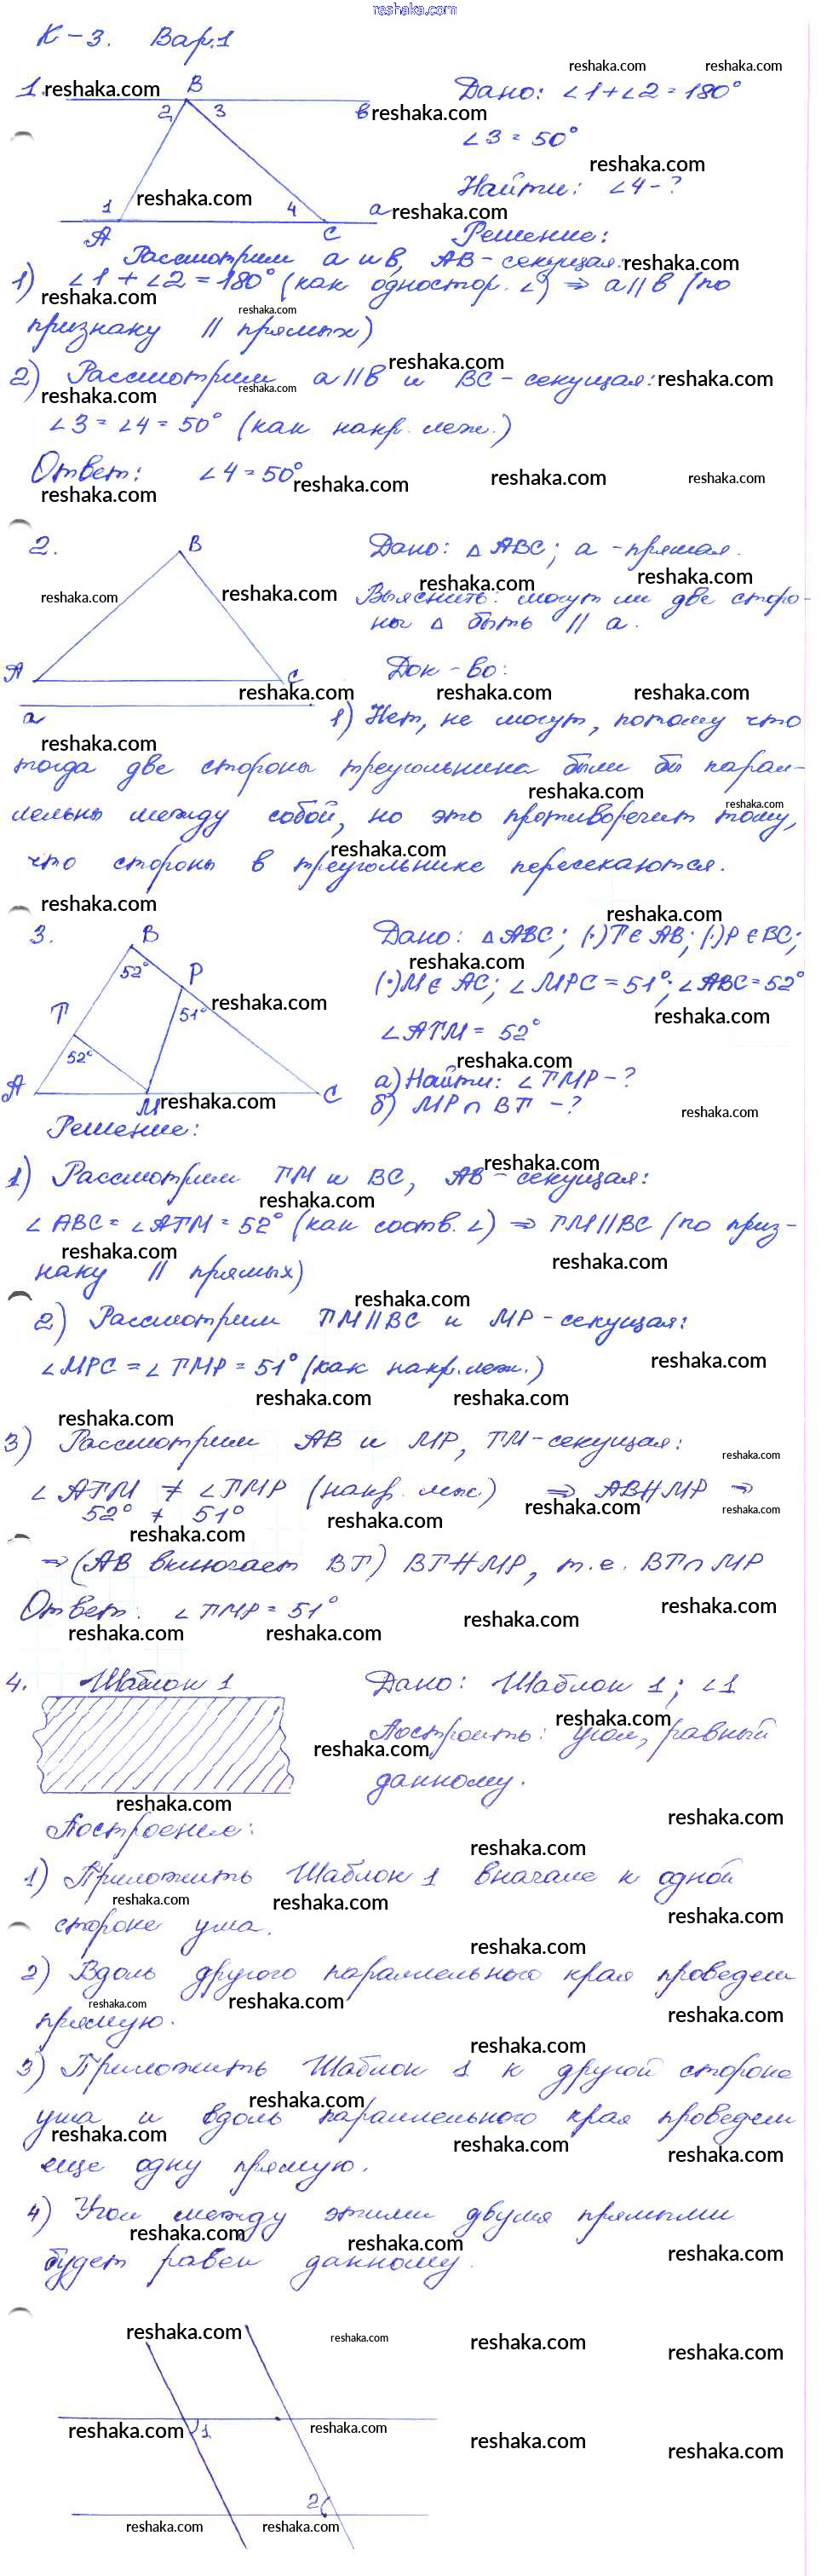 reshaka.com
К-3. Вар.1
1.
B
2 3
в
1
4
a
A
C
Дано: ∠1+∠2=180°
∠3=50°
Найти: ∠4-?
Решение:
Рассмотрим a и в, AB-секущая:
1) ∠1+∠2=180° (как одностор. ∠) ⇒ a||в (по
признаку || прямых)
2) Рассмотрим a||в и BC-секущая:
∠3=∠4=50° (как накр. леж.)
Ответ: ∠4=50°
2.
B
A
C
a
Дано: △ABC; a-прямая.
Выяснить: могут ли две сторо-
ны △ быть || a.
Док-во:
1) Нет, не могут, потому что
тогда две стороны треугольника были бы парал-
лельны между собой, но это противоречит тому,
что стороны в треугольнике пересекаются.
3.
B
52°
P
51°
T
52°
A
M
C
Дано: △ABC; (·)T∈AB; (·)P∈BC;
(·)M∈AC; ∠MPC=51°; ∠ABC=52°
∠ATM=52°
а) Найти: ∠TMP-?
б) MP∩BT-?
Решение:
1) Рассмотрим TM и BC, AB-секущая:
∠ABC=∠ATM=52° (как соотв. ∠) ⇒ TM||BC (по приз-
наку || прямых)
2) Рассмотрим TM||BC и MP-секущая:
∠MPC=∠TMP=51° (как накр. леж.)
3) Рассмотрим AB и MP, TM-секущая:
∠ATM≠∠TMP (накр. леж.) ⇒ AB∦MP ⇒
52° ≠ 51°
⇒ (AB включает BT) BT∦MP, т.е. BT∩MP
Ответ: ∠TMP=51°
4.
Шаблон 1
Дано: Шаблон 1; ∠1
Построить: угол, равный
данному.
Построение:
1) Приложить Шаблон 1 вначале к одной
стороне угла.
2) Вдоль другого параллельного края проведем
прямую.
3) Приложить Шаблон 1 к другой стороне
угла и вдоль параллельного края проведем
еще одну прямую.
4) Угол между этими двумя прямыми
будет равен данному.
1
2